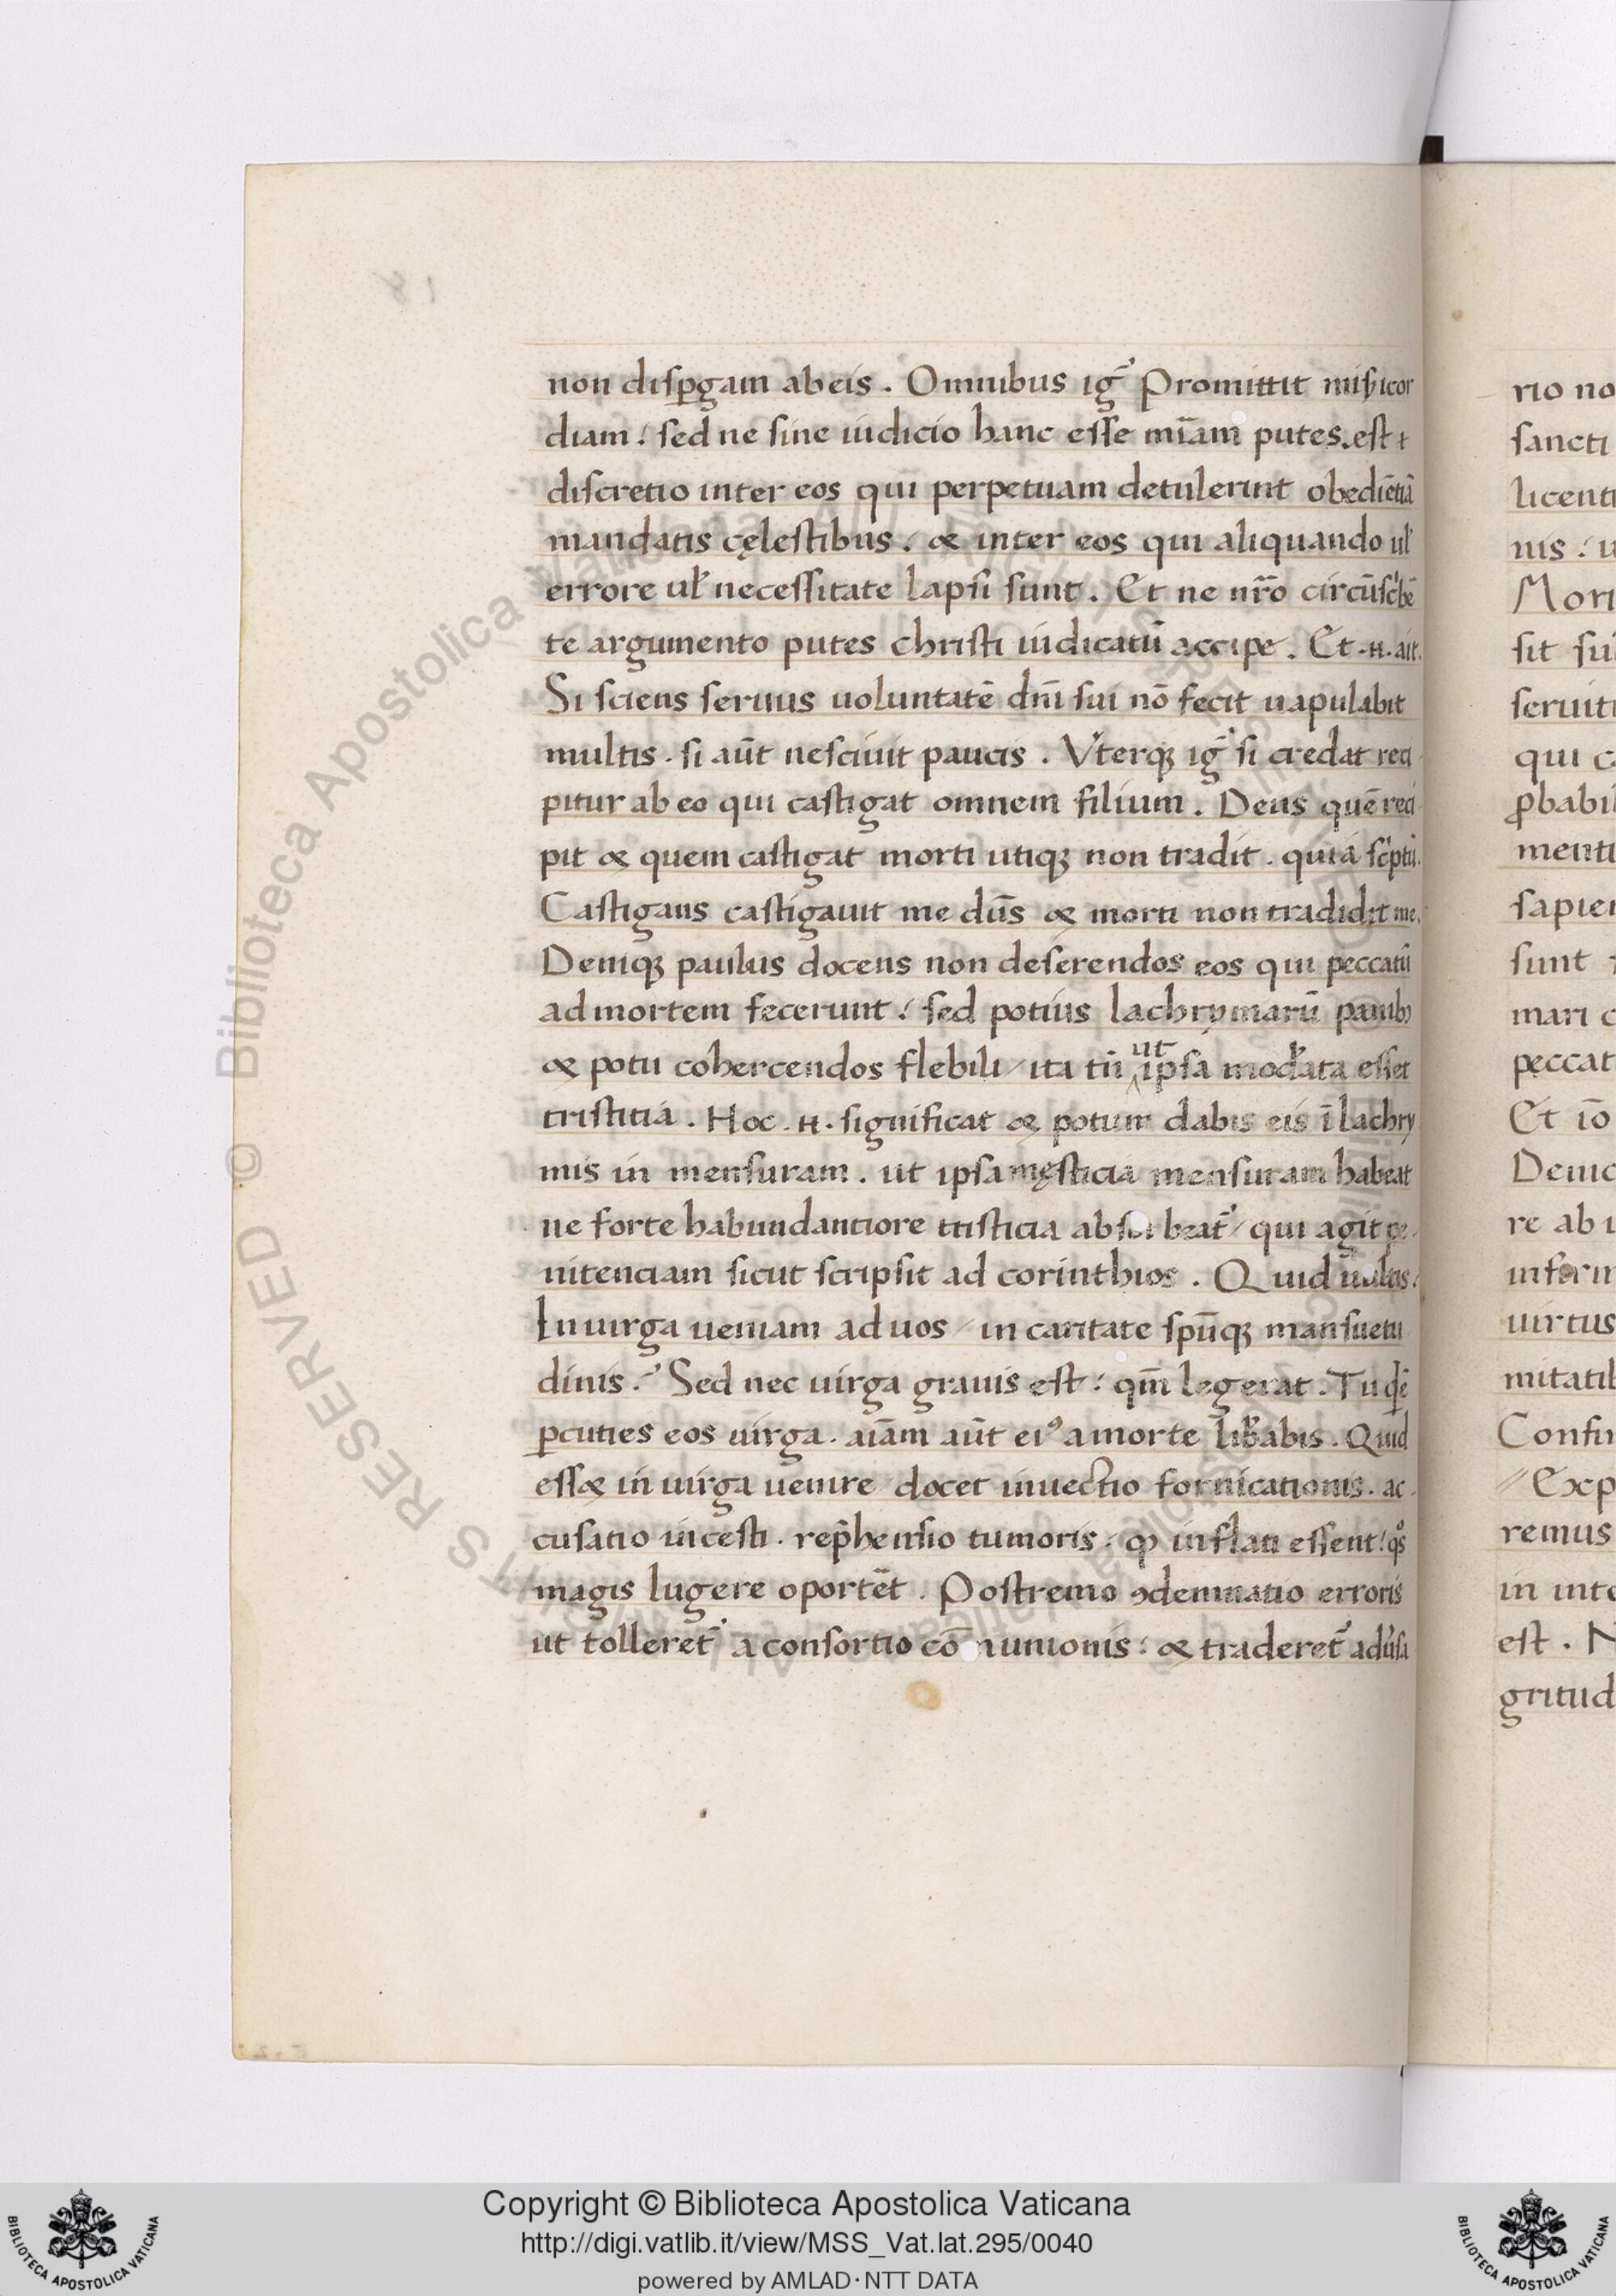 non disꝑgam ab eis . Omnibus ig̃ Promittit misicor
diam : sed ne sine iudicio hanc esse mīam putes . est
discretio inter eos qui perpetuam detulerint obediētiā
mandatis cęlestibus : & inter eos qui aliquando ul̛
errore ul̛ necessitate lapsi sunt . Et ne nr̄o circūsc̛bē
te argumento putes christi iudicatū accipe . Et .n. ait.
Si sciens seruus uoluntatē dn̄i sui nō fecit uapulabit
multis . si aūt nesciuit paucis . Vterqꝫ ig̃ si credat reci
pitur ab eo qui castigat omnem filium . Deus quē reci
pit & quem castigat morti utiqꝫ non tradit . quia sc̛ptū.
Castigans castigauit me dn̄s & morti non tradidit me.
Deniqꝫ paulus docens non deserendos eos qui peccatū
ad mortem fecerunt : sed potius lachrymarū panibꝫ
& potu cohercendos flebili / ita tn̄ ut ipsa mod̛ata esset
tristitia . Hoc .n. significat & potum dabis eis ī lachry
mis in mensuram . ut ipsa męsticia mensuram habeat
ne forte habundantiore tristicia absorbeat᷑ / qui agit pe
nitenciam sicut scripsit ad corinthios . Quid uultis .
In uirga ueniam ad uos / in caritate spūqꝫ mansuetu
dinis .̛ Sed nec uirga grauis est : qm̄ legerat . Tu qđē
ꝑcuties eos uirga . aīam aūt eiꝰ a morte lib̛abis . Quid
ess& in uirga uenire docet inuectio fornicationis . ac
cusatio incesti . rep̄hensio tumoris . ꝙ inflati essent : qͦs
magis lugere oportēt . Postremo ꝯdemnatio erroris
ut tolleret᷑ a consortio cōmunionis : & traderet᷑ adưsa
rio no
sancti
licenti
nis : u
Mori
sit su
seruit
qui c
ꝓbabil
menti
sapien
sunt
mari c
peccat
Et iō
Deniq
re ab i
infirm
uirtus
mitatib
Confir
Exp
remus
in inte
est . N
gritud
© Biblioteca Apostolica Vaticana
RESERVED
Copyright © Biblioteca Apostolica Vaticana
http://digi.vatlib.it/view/MSS_Vat.lat.295/0040
powered by AMLAD·NTT DATA
BIBLIOTECA APOSTOLICA VATICANA
BIBLIOTECA APOSTOLICA VATICANA